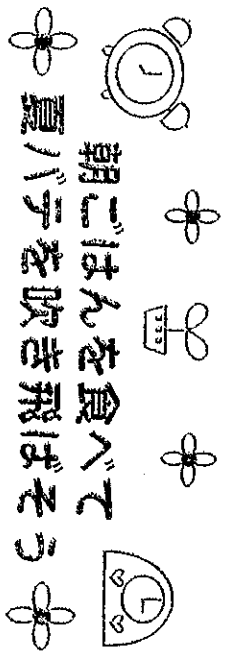 朝ごはんを食べて
夏バテを吹き飛ばそう